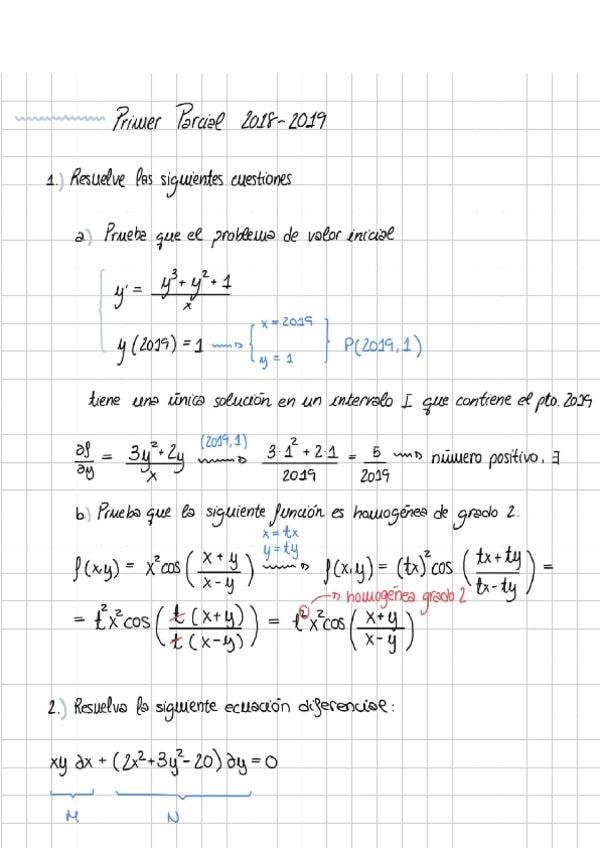 Primer Parcial 2018-2019
1.) Resuelve las siguientes cuestiones
a) Prueba que el problema de valor inicial
y' = (y³ + y² + 1)/x
y(2019) = 1 ⟿ { x = 2019
y = 1 } P(2019,1)
tiene una única solución en un intervalo I que contiene el pto. 2019
∂f/∂y = (3y² + 2y)/x (2019,1) ⟿ (3·1² + 2·1)/2019 = 5/2019 ⟿ número positivo, ∃
b) Prueba que la siguiente función es homogénea de grado 2.
x = tx
y = ty
f(x,y) = x² cos((x + y)/(x - y)) ⟿ f(x,y) = (tx)² cos((tx + ty)/(tx - ty)) =
→ homogénea grado 2
= t²x² cos(t(x+y)/t(x-y)) = t²x² cos((x+y)/(x-y))
2.) Resuelva la siguiente ecuación diferencial:
xy ∂x + (2x²+3y²-20) ∂y = 0
M N